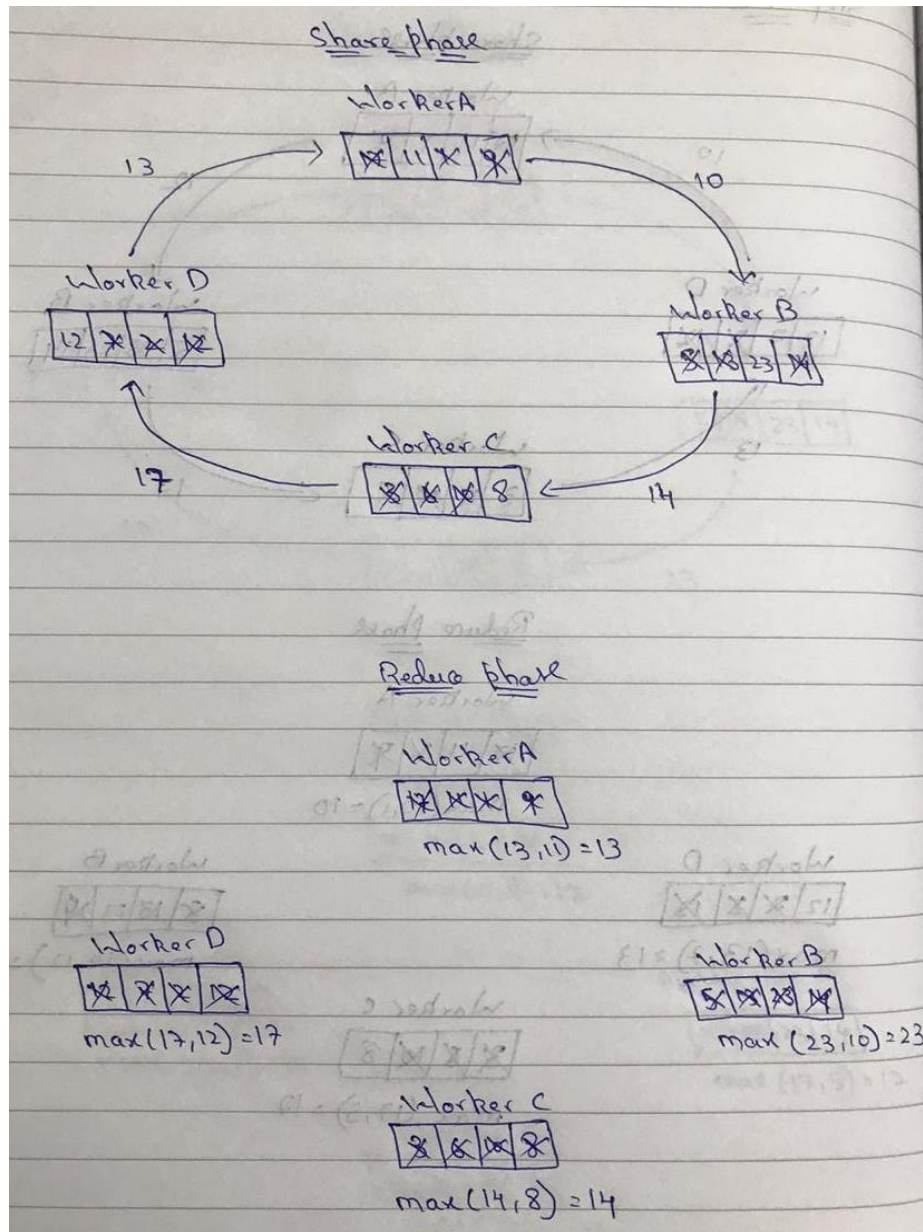 Share phase
Worker A
11
13
10
Worker D
12
Worker B
23
Worker C
8
17
14
Reduce phase
Worker A
max(13,11)=13
Worker D
max(17,12)=17
Worker B
max(23,10)=23
Worker C
max(14,8)=14